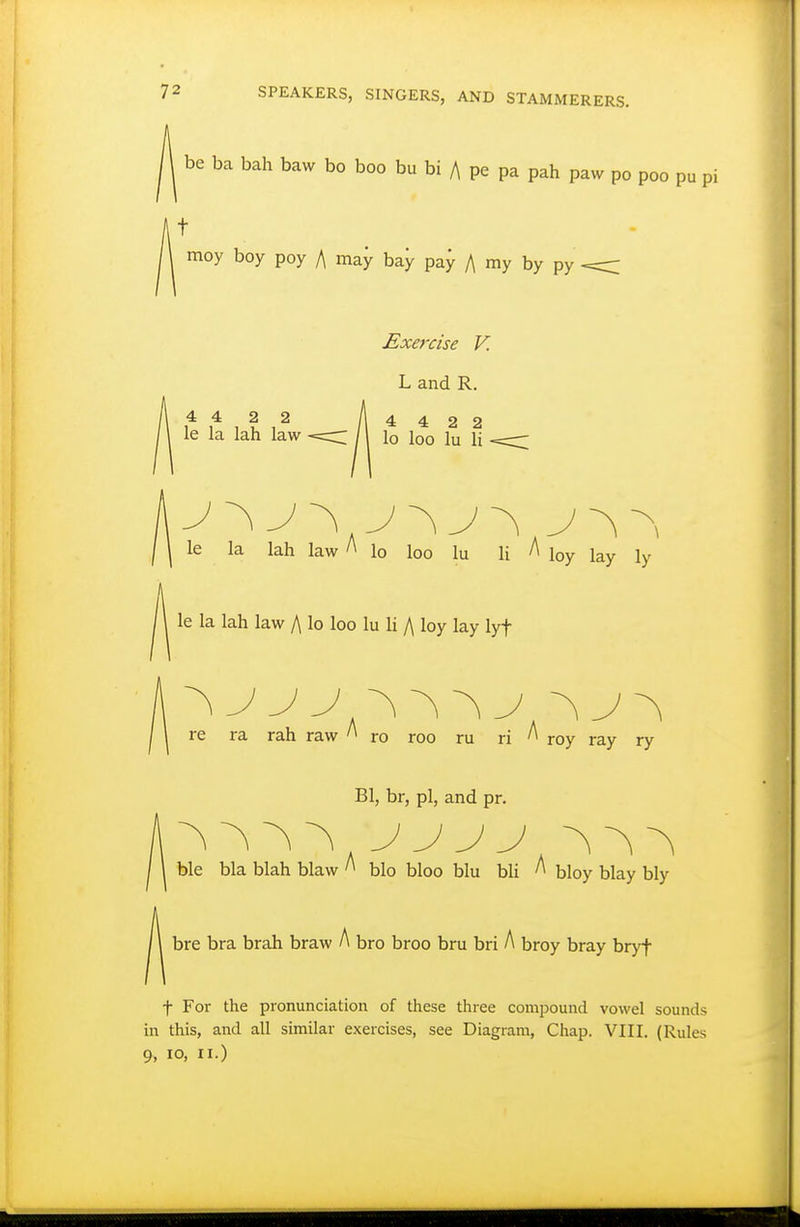 72 SPEAKERS, SINGERS, AND STAMMERERS.
be ba bah baw bo boo bu bi /\ pe pa pah paw po poo pu pi
†
moy boy poy /\ may bay pay /\ my by py <
Exercise V.
L and R.
4 4 2 2 4 4 2 2
le la lah law < lo loo lu li <
le la lah law /\ lo loo lu li /\ loy lay ly
le la lah law /\ lo loo lu li /\ loy lay ly†
re ra rah raw /\ ro roo ru ri /\ roy ray ry
Bl, br, pl, and pr.
ble bla blah blaw /\ blo bloo blu bli /\ bloy blay bly
bre bra brah braw /\ bro broo bru bri /\ broy bray bry†
† For the pronunciation of these three compound vowel sounds
in this, and all similar exercises, see Diagram, Chap. VIII. (Rules
9, 10, 11.)